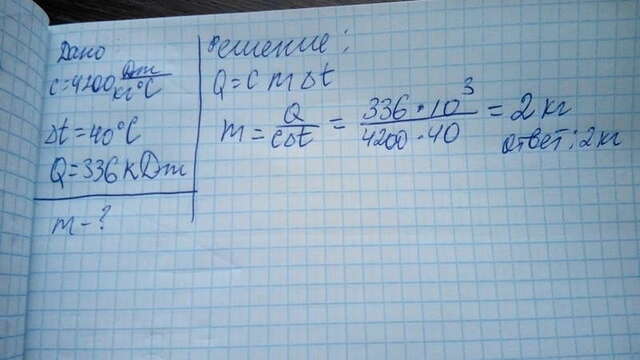 Дано
c=4200 Дж/кг°C
Δt=40°C
Q=336 кДж
m-?
Решение:
Q=c m Δt
m = Q/cΔt = 336·10³/4200·40 = 2 кг
ответ: 2 кг